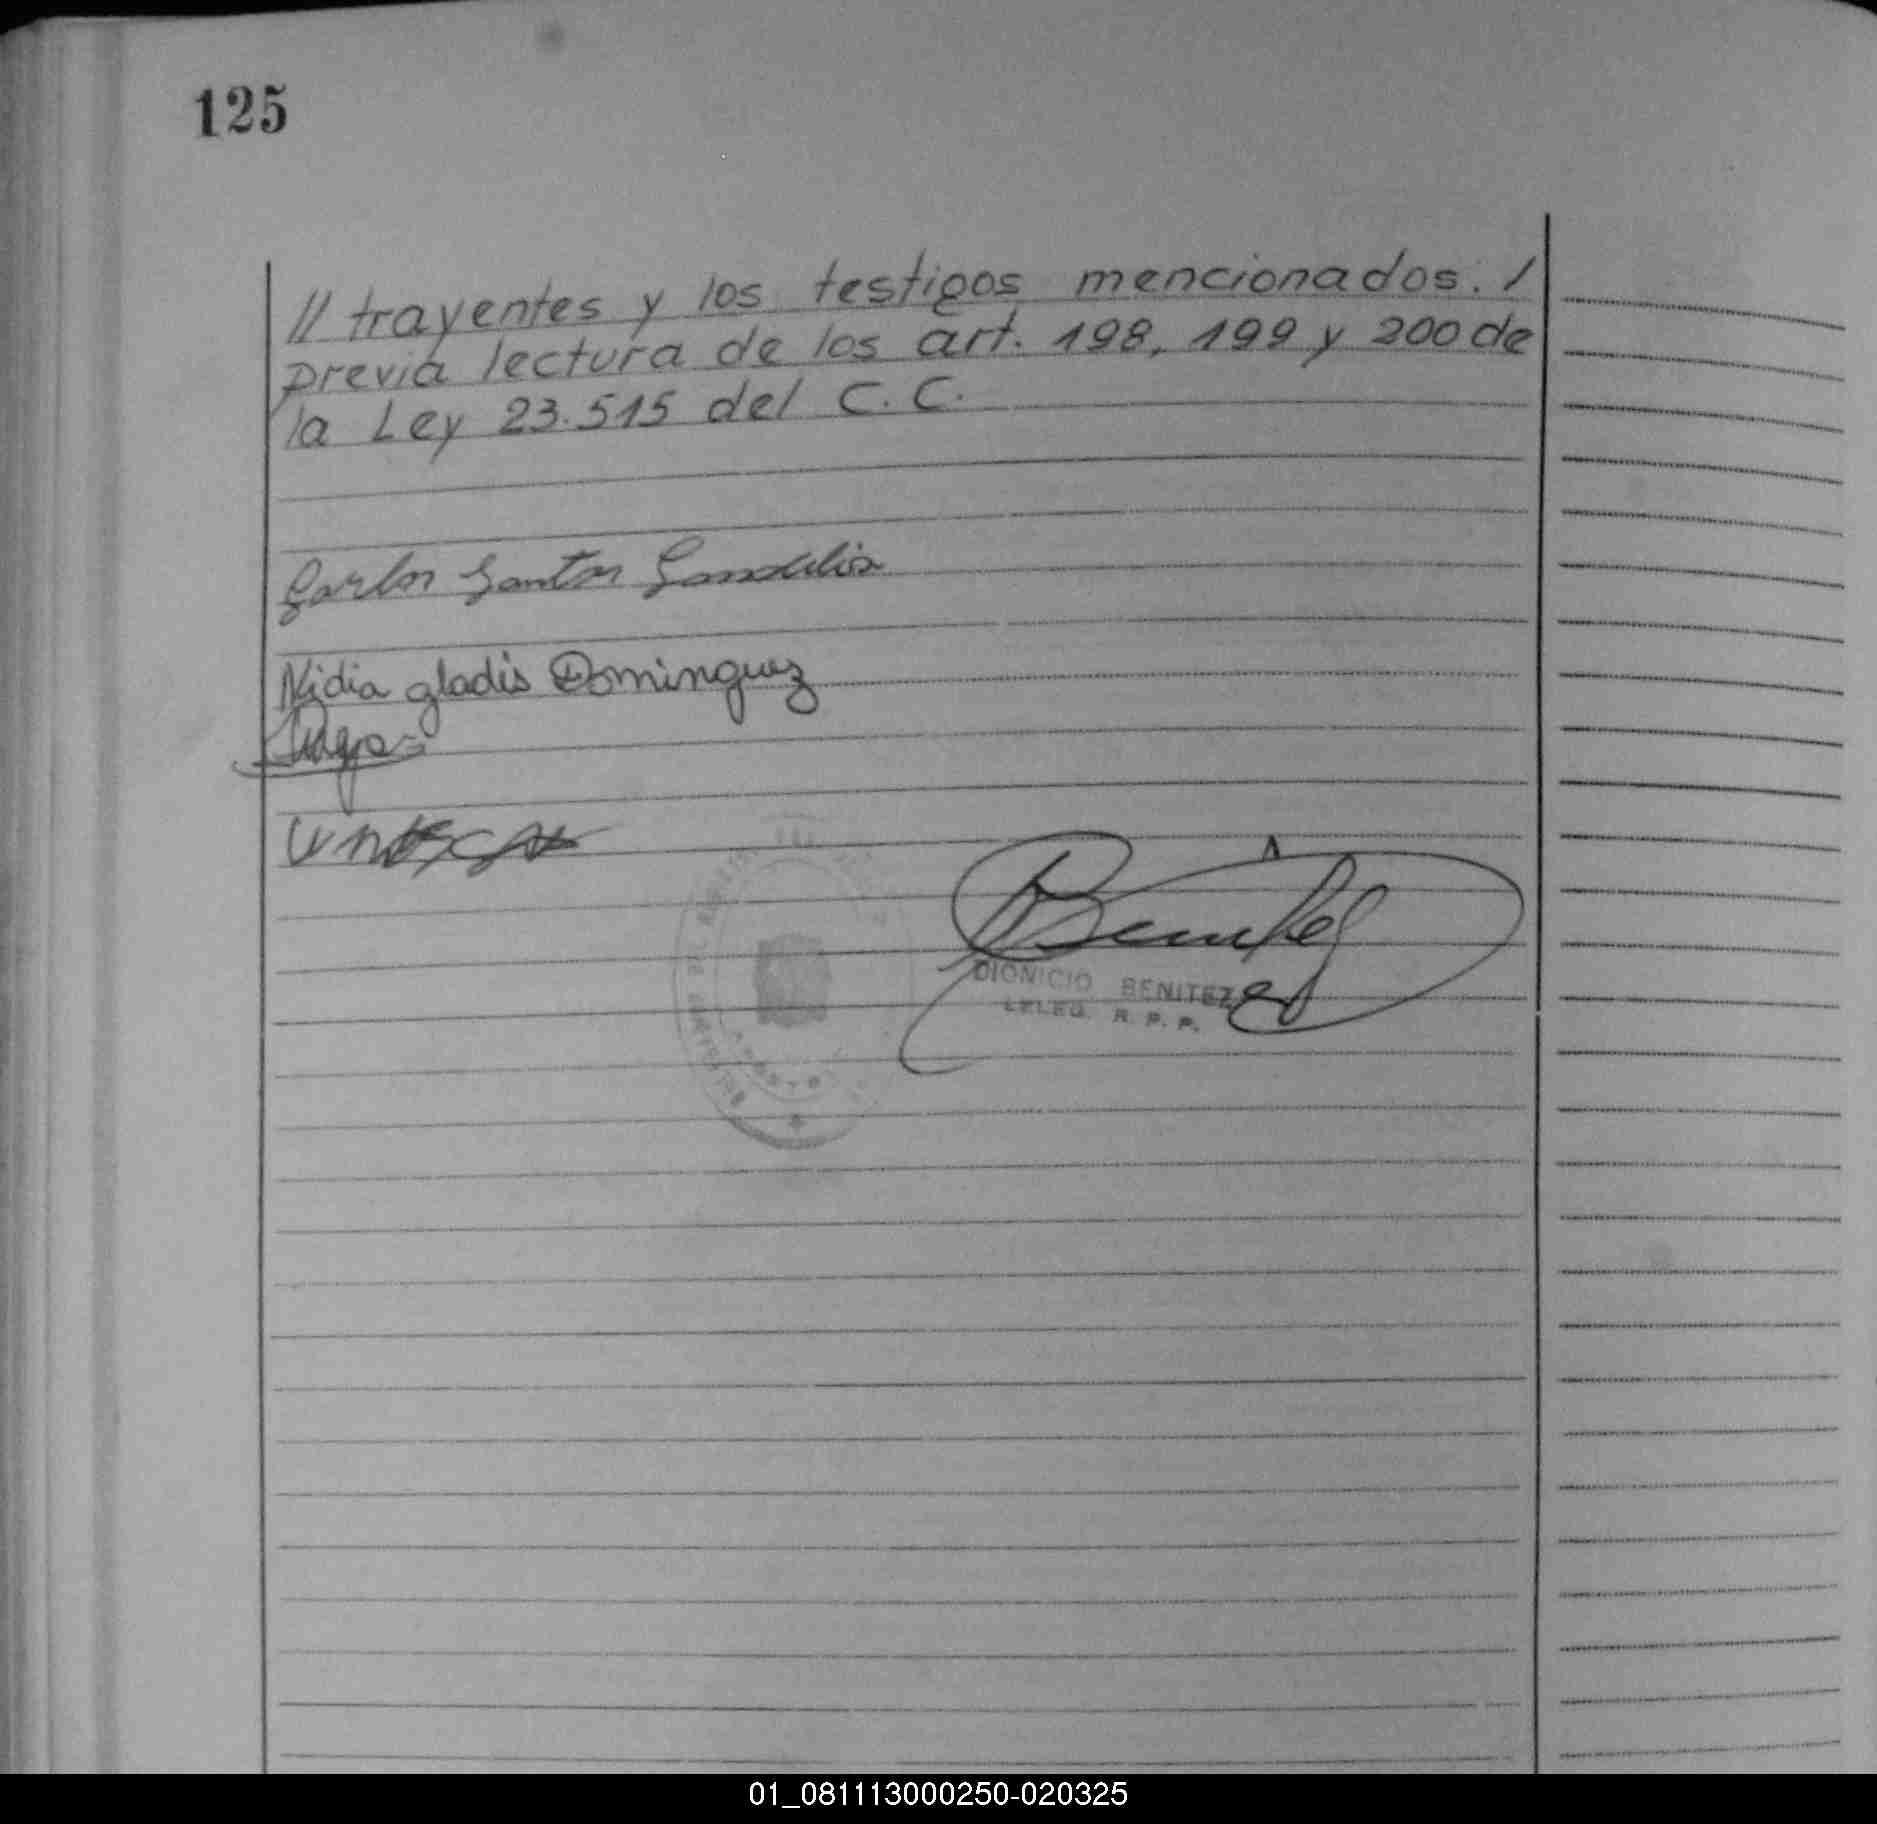 125
// trayentes y los testigos mencionados. /
previa lectura de los art. 198, 199 y 200 de
la Ley 23.515 del C. C.
Carlos Santos
Nidia gladis Dominguez
Benitez
DIONICIO BENITEZ
DELEG. R. P. P.
01_081113000250-020325